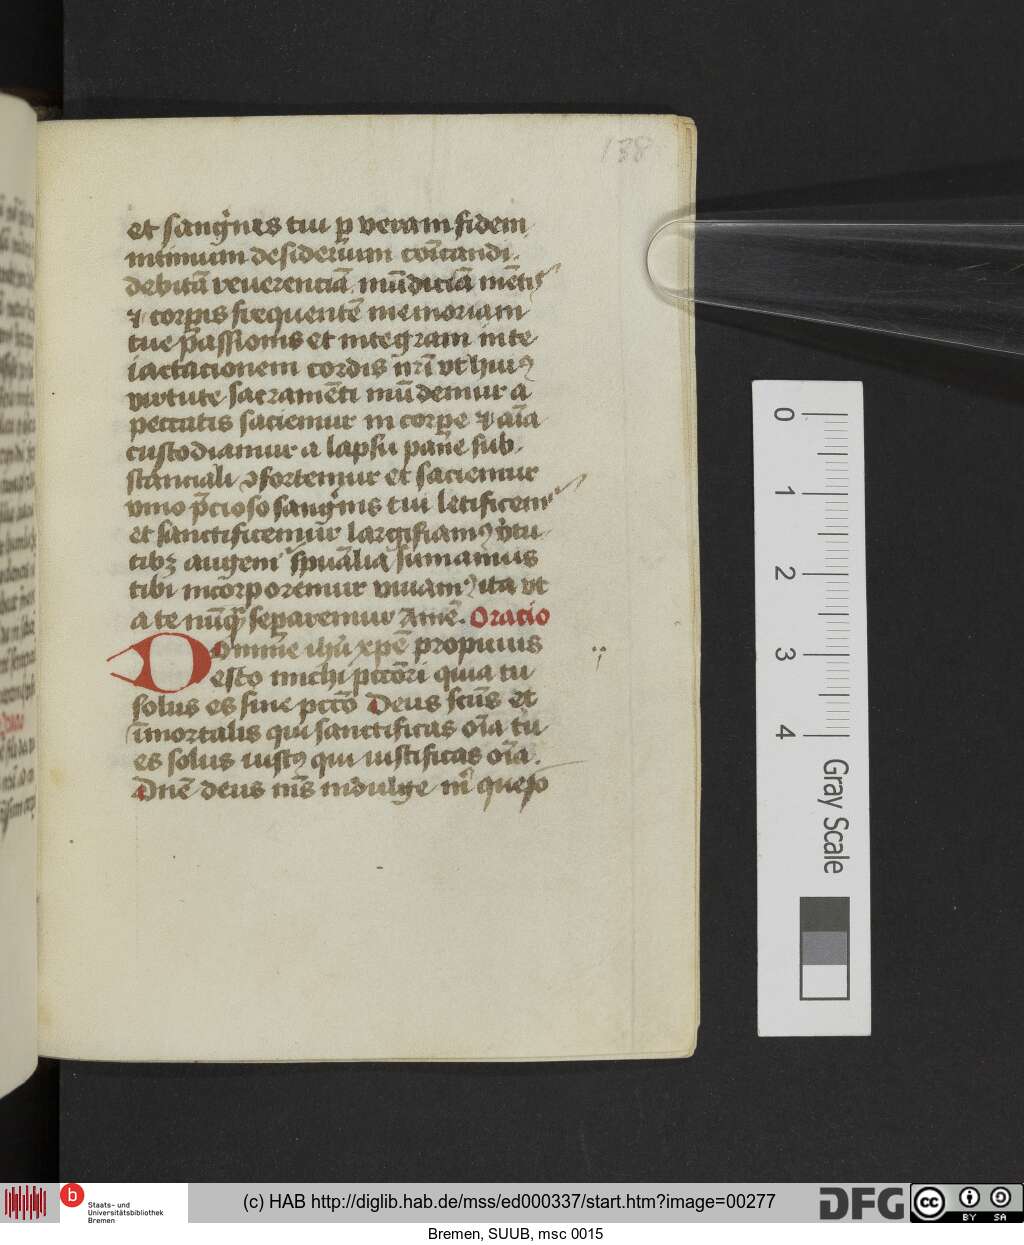 138
et sangʼnis tui ꝑ veram fidem
intimum desideriuum cōicandi.
debitā reuerenciā. mūdiciā mētis
⁊ corpis frequentē memoriam
tue passionis et integram inte
iactacionem cordis nr̄i vt huiꝰ
virtute sacramēti mūdemur a
peccatis saciemur in corpe ⁊ aīa
custodiamur a lapsu pane sub
stanciali ꝯfortemur et saciemur
vino p̄cioso sangʼnis tui letificemʼ
et sanctificemur
tibꝫ augemʼ spūalia sumamus
tibi incorporemur viuamꝰ ita vt
a te nūqͣ separemur Amē. Oratio
Domine ihū xpē propicius
esto michi pccōri quia tu
solus es sine pccō Deus scūs et
īmortalis qui sanctificas oīa tu
es solus iustꝰ qui iustificas oīa.
Dnē deus nīs indulge mʼ queso
0
1
2
3
4
Gray Scale
b
Staats- und
Universitätsbibliothek
Bremen
(c) HAB http://diglib.hab.de/mss/ed000337/start.htm?image=00277
DFG
cc
BY SA
Bremen, SUUB, msc 0015